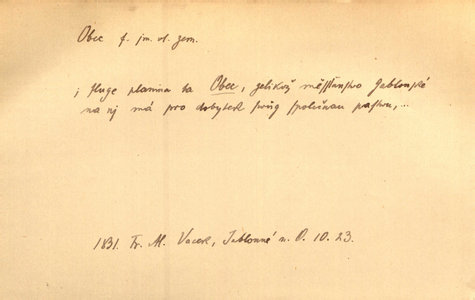 Obec f. jm. vl. zem.
; sluge planina ta Obec, gelikož měsstanstvo Jablonské
na nj má pro dobytek swůg společnau pastwu, ...
1831. Fr. Al. Vacek, Jablonné n. O. 10. 23.